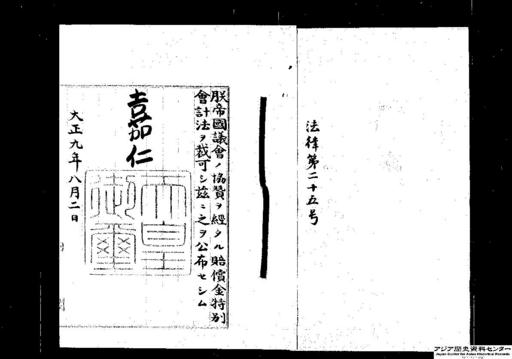 法律第二十五号
朕帝國議會ノ協賛ヲ經タル賠償金特別
會計法ヲ裁可シ玆ニ之ヲ公布セシム
嘉仁
天皇
御璽
大正九年八月二日
アジア歴史資料センター
Japan Center for Asian Historical Records